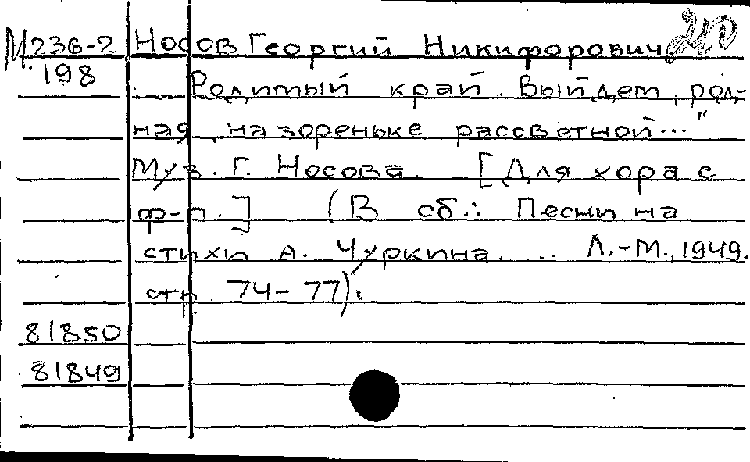 М236-2 Носов Георгий Никифорович 240
198 Родимый край. "Выйдем, род-
ная, на зореньке рассветной..."
Муз. Г. Носова. [Для хора с
ф-п.] (В сб.: Песни на
стихи А. Чуркина. .. Л.-М., 1949.
стр. 74-77).
81850
81849